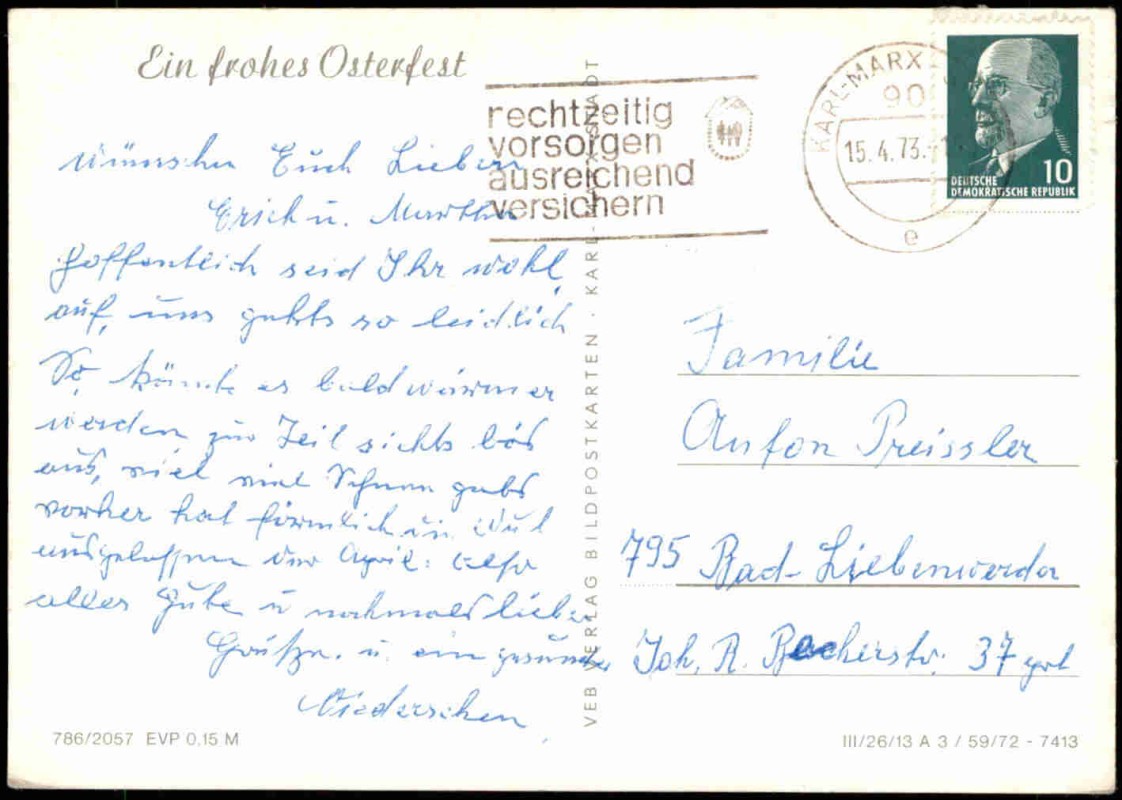 Ein frohes Osterfest
wünschen Euch Lieben
Erich u. Martha
Hoffentlich seid Ihr wohl
auf, uns gehts so leidlich
So könnte es bald wärmer
werden zur Zeit siehts bös
aus, viel viel Schnee gabs
vorher hat förmlich die Wut
ausgelassen der April: Also
alles Gute u nochmals liebe
Grüße. u. ein gesundes
Wiedersehen
786/2057 EVP 0,15 M
VEB VERLAG BILDPOSTKARTEN · KARL-MARX-STADT
rechtzeitig
vorsorgen
ausreichend
versichern
KARL-MARX
90
15.4.73.
e
10
DEUTSCHE
DEMOKRATISCHE REPUBLIK
Familie
Anton Preissler
795 Bad-Liebenwerda
Joh. R. Becherstr. 37
III/26/13 A 3 / 59/72 - 7413